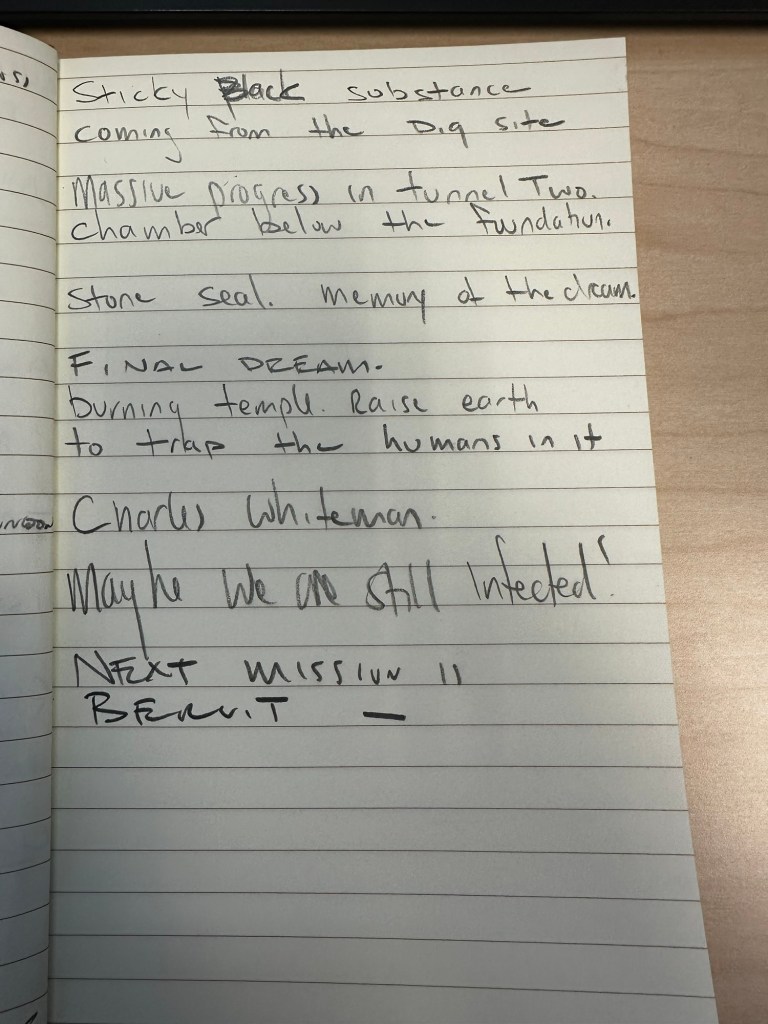 Sticky Black substance
coming from the Dig site
Massive progress in tunnel Two.
chamber below the fundation.
Stone seal. memory of the dream.
FINAL DREAM.
burning temple. Raise earth
to trap the humans in it
Charles Whiteman.
Maybe we are still Infected!
NEXT MISSION 11
BERUIT —